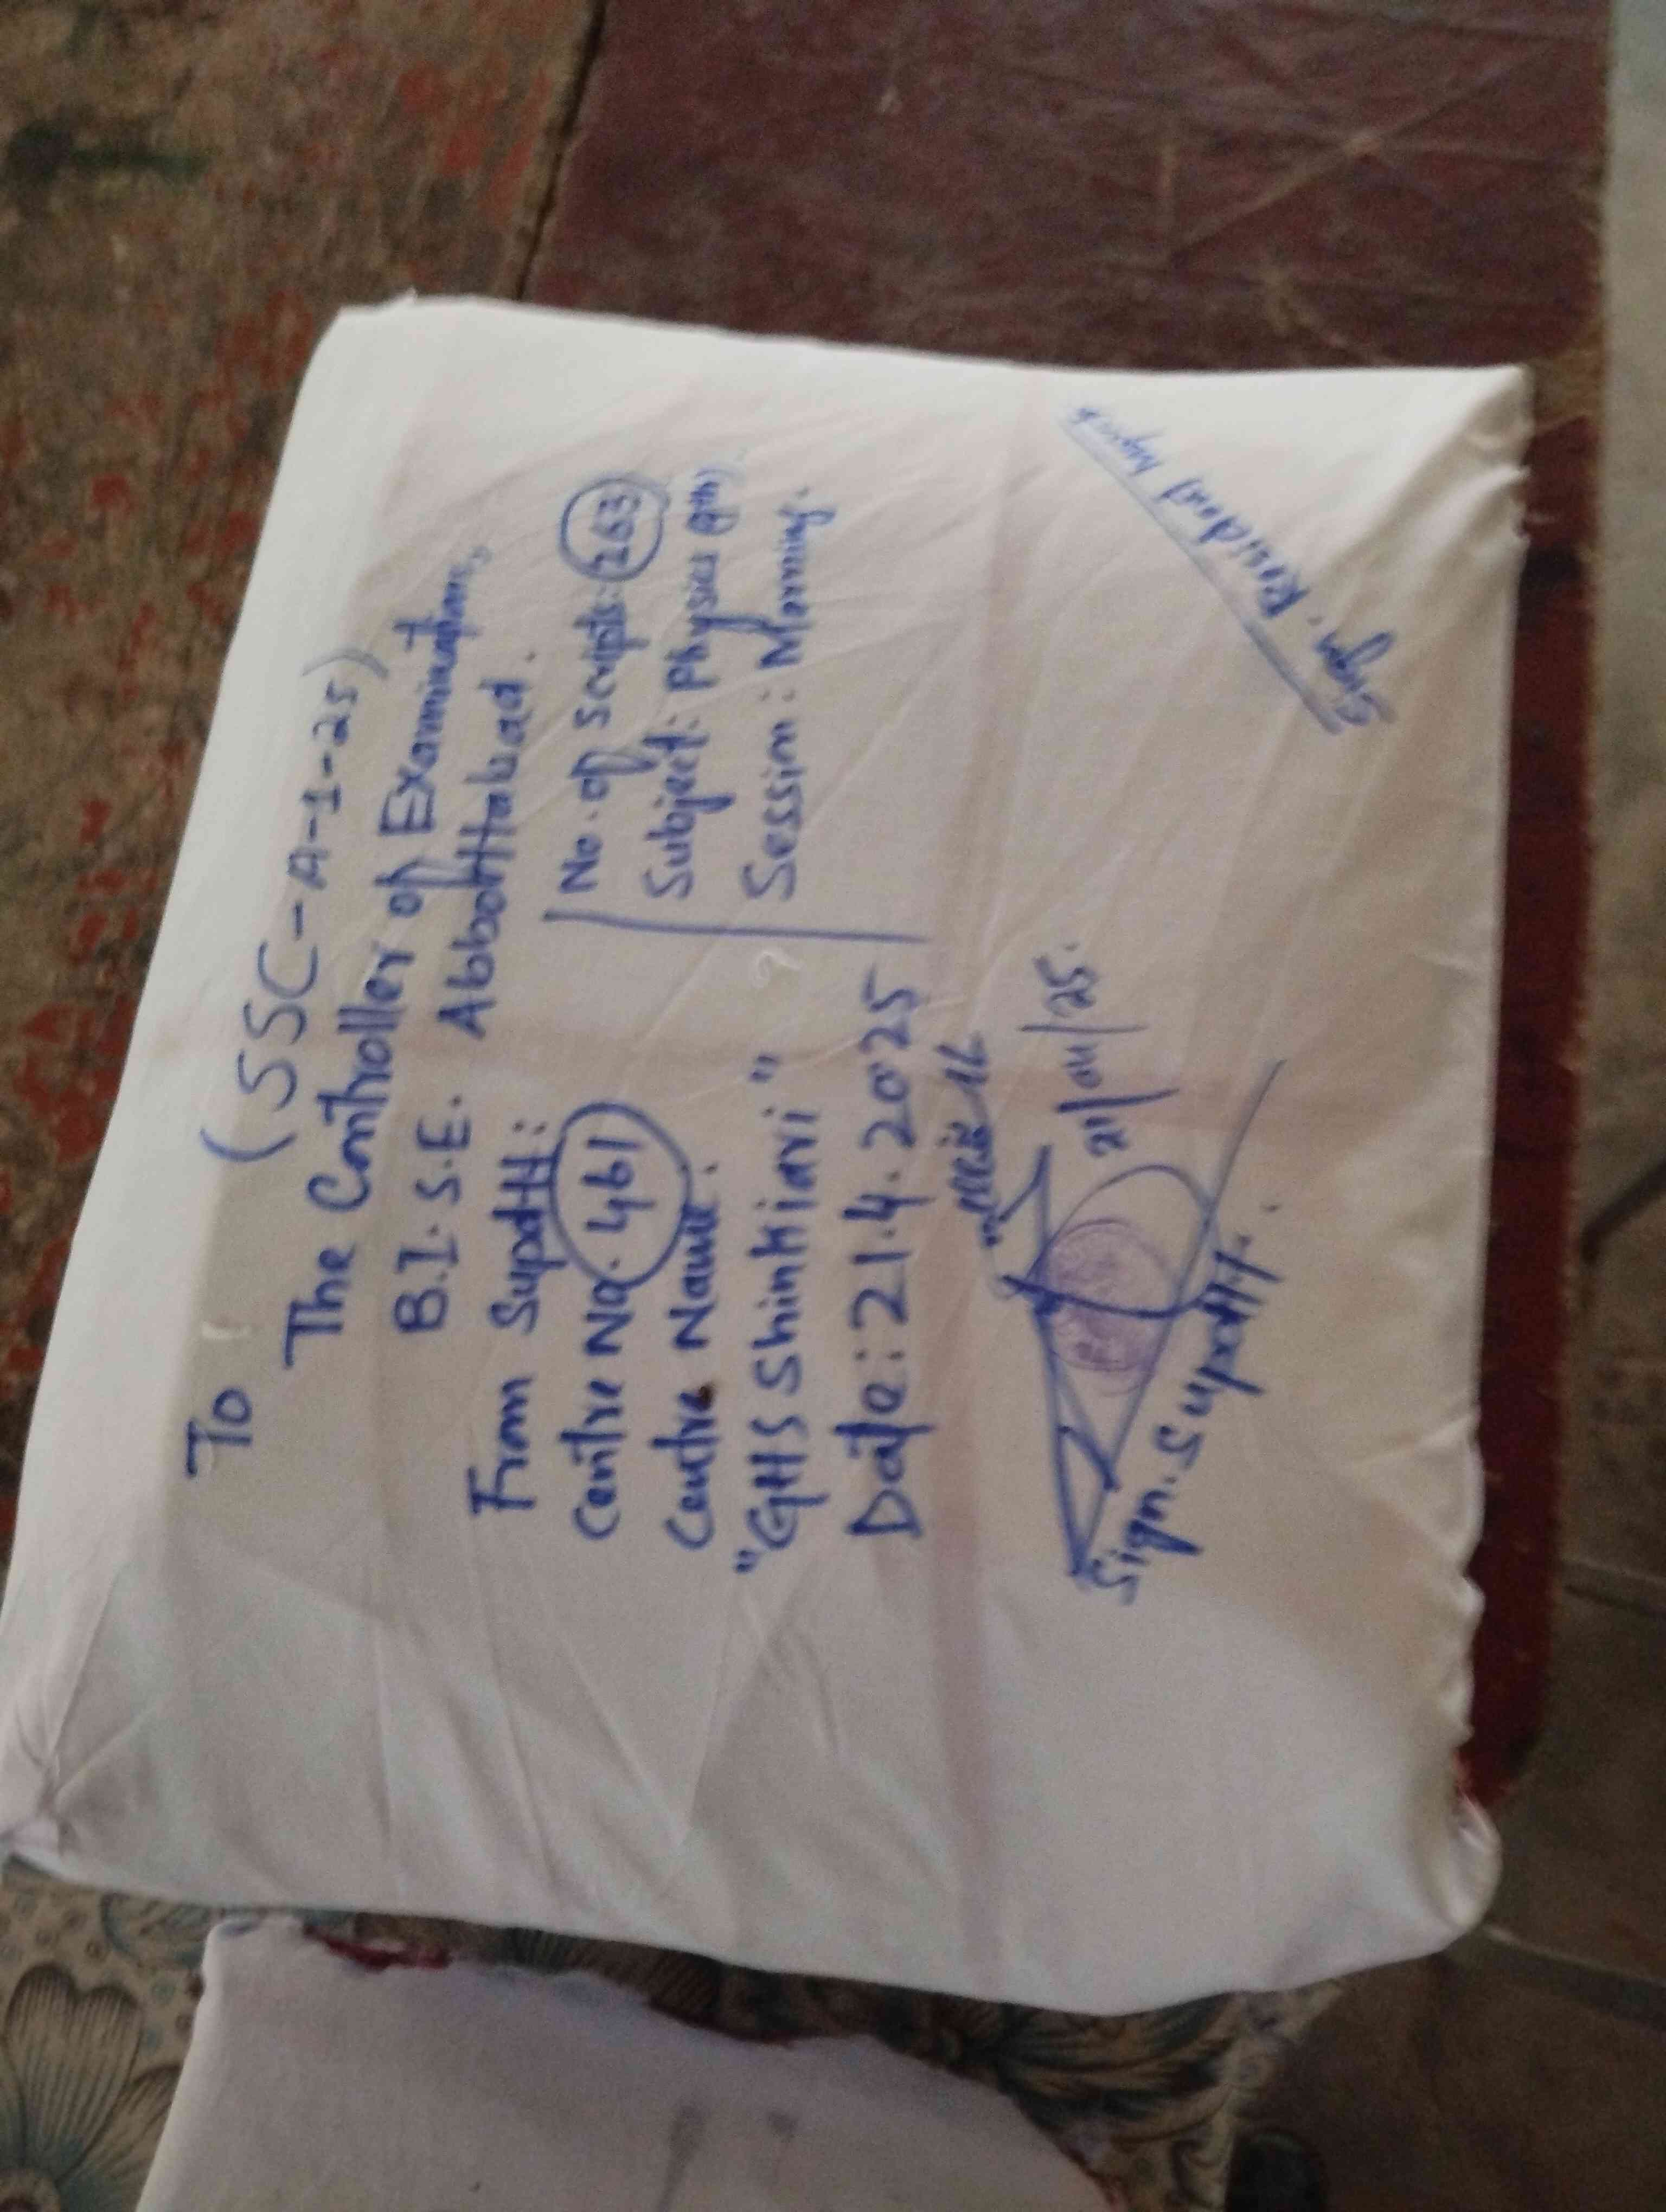 To
(SSC-A-1-25)
The Controller of Examinations,
B.I.S.E. Abbottabad.
From Supdtt:
Centre No. 461
Centre Name:
"GHS Shinkiari"
Date: 21.4.2025
No. of scripts: 263
Subject: Physics (9th).
Session: Morning.
21/04/25.
Sign. Supdtt.
Sign. Resident